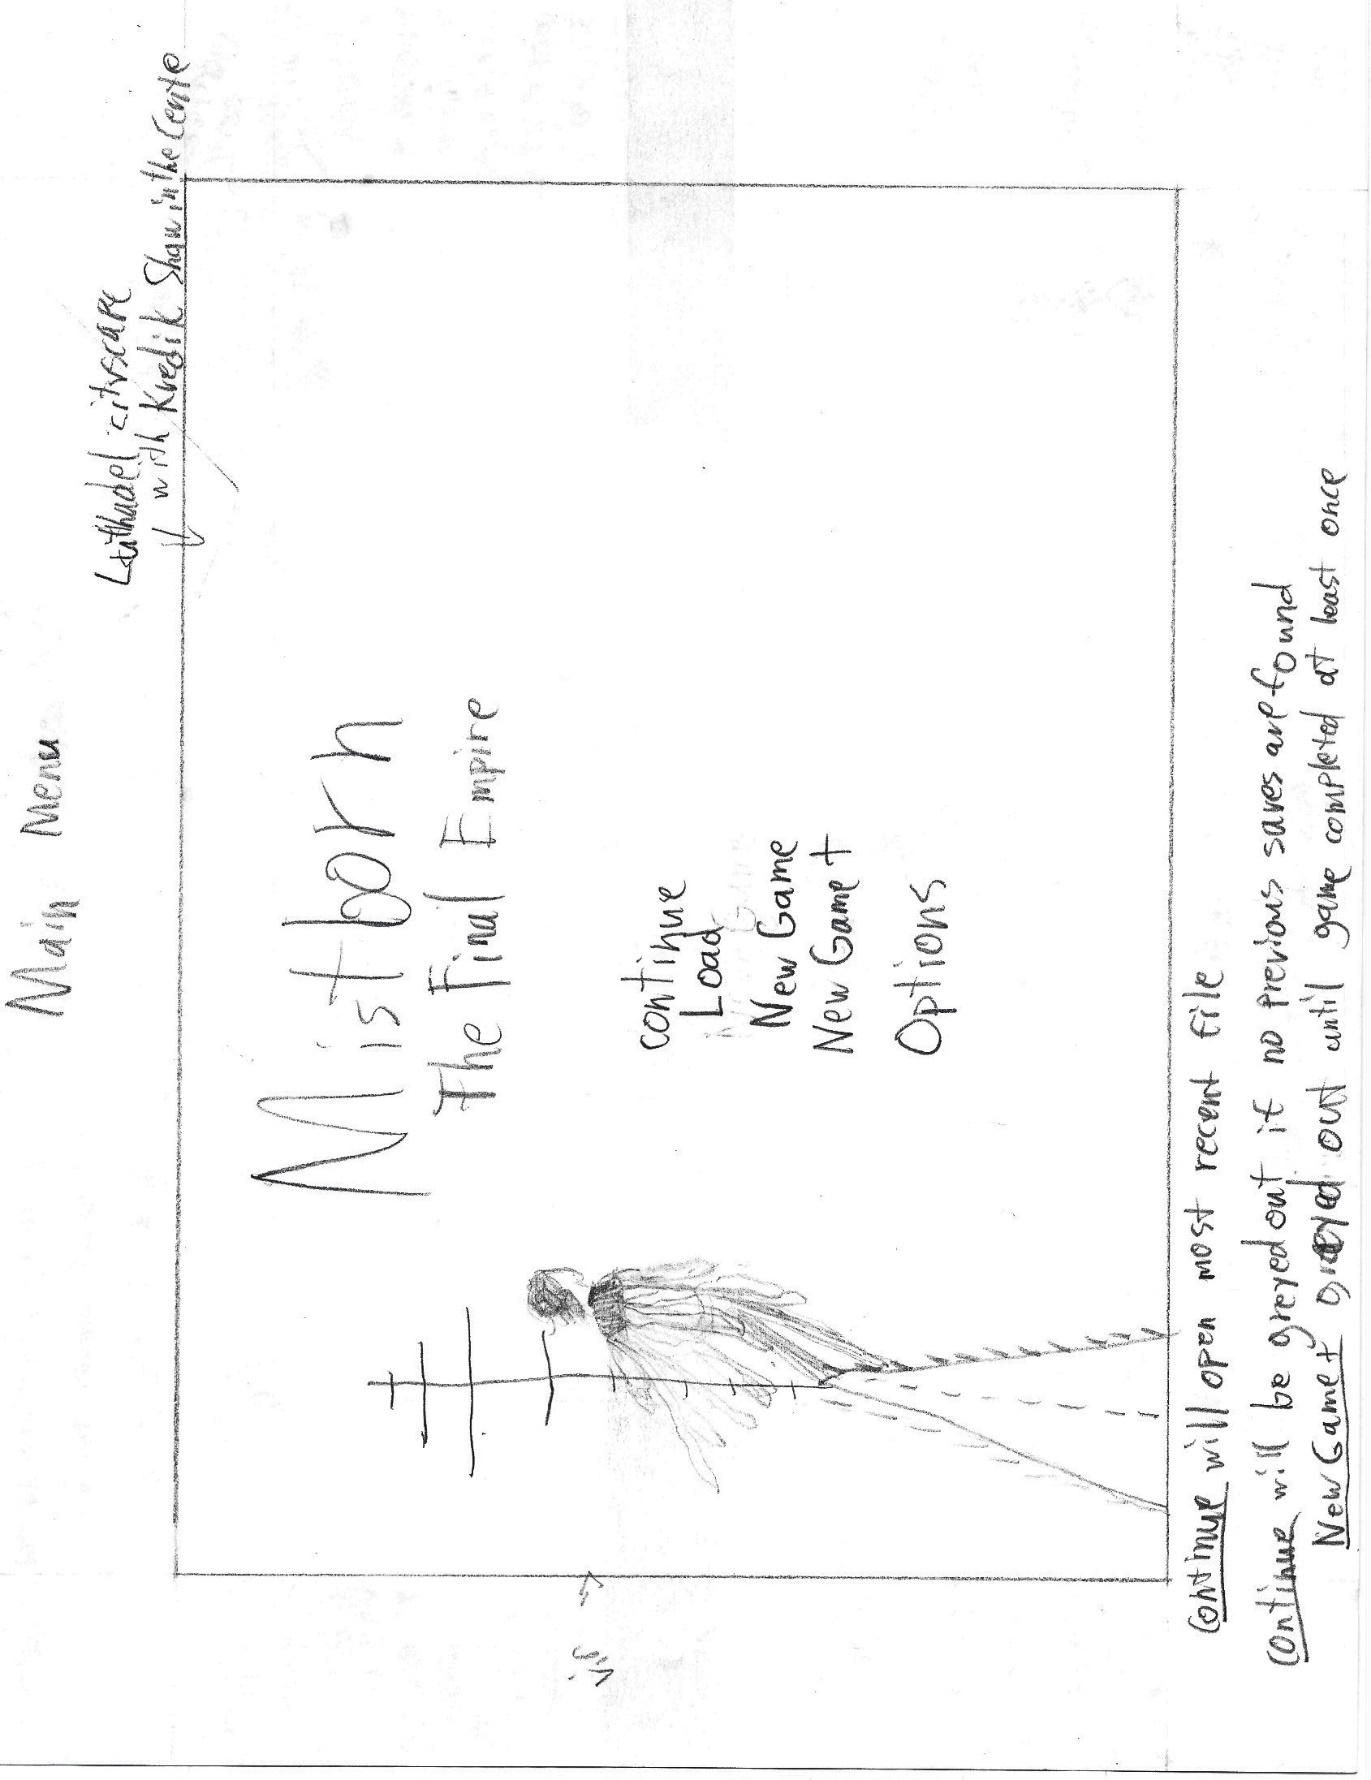 Main Menu
Luthadel cityscape
with Kredik Shaw in the Centre
Mistborn
The Final Empire
Continue
Load
New Game
New Game +
Options
Vin
Continue will open most recent file
Continue will be greyed out if no previous saves are found
New Game + greyed out until game completed at least once